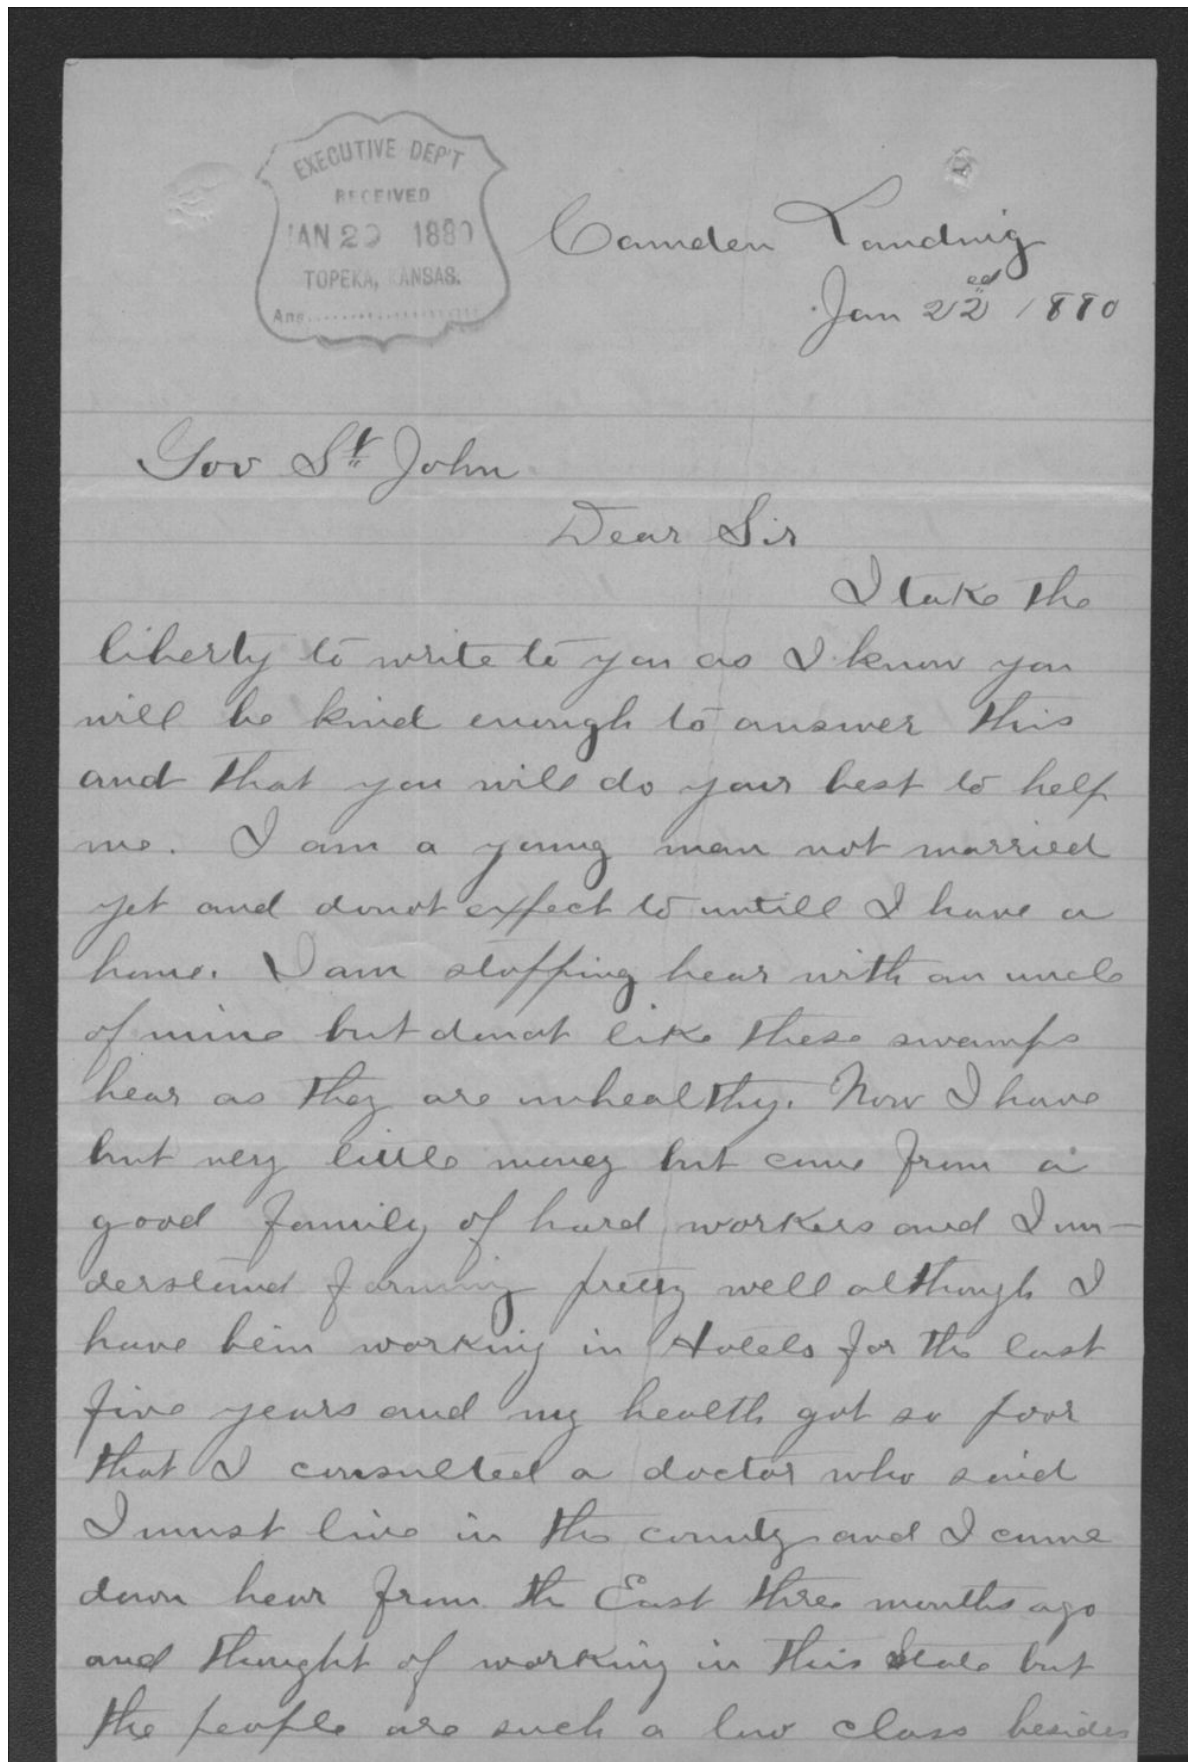 EXECUTIVE DEP'T
RECEIVED
JAN 29 1880
TOPEKA, KANSAS.
Ans
Camden Landing
Jan 22ed 1880
Gov St John
Dear Sir
I take the
liberty to write to you as I know you
will be kind enough to answer this
and that you will do your best to help
me. I am a young man not married
yet and donot expect to untill I have a
home. I am stopping hear with an uncle
of mine but donot like these swamps
hear as they are unhealthy. Now I have
but very little money but come from a
good family of hard workers and I un-
derstand farming pretty well although I
have bein working in Hotels for the last
five years and my health got so poor
that I consulted a doctor who said
I must live in the county and I came
down hear from the East three months ago
and thought of working in this State but
the people are such a low class besides